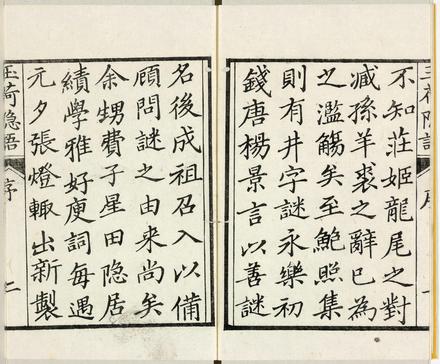 不知莊姬龍尾之對
臧孫羊裘之辭已為
之濫觴矣至鮑照集
則有井字謎永樂初
錢唐楊景言以善謎
名後成祖召入以備
顧問謎之由來尚矣
余甥費子星田隐居
績學雅好庾詞每遇
元夕張燈輒出新製
玉荷隐語
序
二